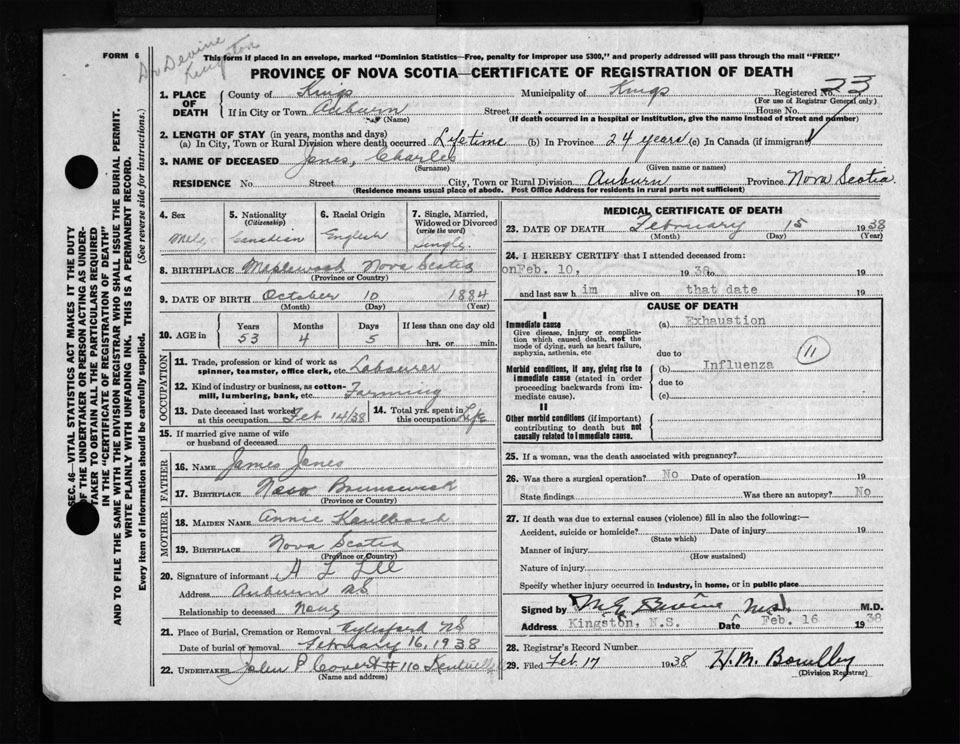 Dr Devine
FORM 6
This form if placed in an envelope, marked "Dominion Statistics—Free, penalty for improper use $300," and properly addressed will pass through the mail "FREE"
PROVINCE OF NOVA SCOTIA—CERTIFICATE OF REGISTRATION OF DEATH
SEC. 46—VITAL STATISTICS ACT MAKES IT THE DUTY
OF THE UNDERTAKER OR PERSON ACTING AS UNDER-
TAKER TO OBTAIN ALL THE PARTICULARS REQUIRED
IN THE "CERTIFICATE OF REGISTRATION OF DEATH"
AND TO FILE THE SAME WITH THE DIVISION REGISTRAR WHO SHALL ISSUE THE BURIAL PERMIT.
WRITE PLAINLY WITH UNFADING INK. THIS IS A PERMANENT RECORD.
Every item of information should be carefully supplied. (See reverse side for instructions.)
1. PLACE OF DEATH County of Kings Municipality of Kings Registered No. 23
(For use of Registrar General only)
If in City or Town Auburn Street House No.
(Name) (If death occurred in a hospital or institution, give the name instead of street and number)
2. LENGTH OF STAY (in years, months and days)
(a) In City, Town or Rural Division where death occurred Lifetime (b) In Province 24 years (c) In Canada (if immigrant)
3. NAME OF DECEASED Jones, Charles
(Surname) (Given name or names)
RESIDENCE No. Street City, Town or Rural Division Auburn Province Nova Scotia
(Residence means usual place of abode. Post Office Address for residents in rural parts not sufficient)
4. Sex 5. Nationality (Citizenship) 6. Racial Origin 7. Single, Married, Widowed or Divorced (write the word)
Male Canadian English Single
8. BIRTHPLACE Maplewood Nova Scotia
(Province or Country)
9. DATE OF BIRTH October 10 1884
(Month) (Day) (Year)
10. AGE in Years Months Days If less than one day old
53 4 5 hrs. or min.
OCCUPATION
11. Trade, profession or kind of work as
spinner, teamster, office clerk, etc. Labourer
12. Kind of industry or business, as cotton-
mill, lumbering, bank, etc. Farming
13. Date deceased last worked at this occupation Feb 14/38 14. Total yrs. spent in this occupation Life
15. If married give name of wife
or husband of deceased
FATHER
16. NAME James Jones
17. BIRTHPLACE New Brunswick
(Province or Country)
MOTHER
18. MAIDEN NAME Annie Kaulbach
19. BIRTHPLACE Nova Scotia
(Province or Country)
20. Signature of informant
Address Auburn NS
Relationship to deceased None
21. Place of Burial, Cremation or Removal Aylesford NS
Date of burial or removal February 16, 1938
22. UNDERTAKER John P Covert #110 Kentville
(Name and address)
MEDICAL CERTIFICATE OF DEATH
23. DATE OF DEATH February 15 1938
(Month) (Day) (Year)
24. I HEREBY CERTIFY that I attended deceased from:
on Feb. 10, 1938 to 19
and last saw him alive on that date 19
CAUSE OF DEATH
I
Immediate cause (a) Exhaustion
Give disease, injury or complica-
tion which caused death, not the
mode of dying, such as heart failure,
asphyxia, asthenia, etc due to
11
Morbid conditions, if any, giving rise to (b) Influenza
immediate cause (stated in order
proceeding backwards from im- due to
mediate cause). (c)
II
Other morbid conditions (if important)
contributing to death but not
causally related to immediate cause.
25. If a woman, was the death associated with pregnancy?
26. Was there a surgical operation? No Date of operation 19
State findings Was there an autopsy? No
27. If death was due to external causes (violence) fill in also the following:—
Accident, suicide or homicide? Date of injury 19
(State which)
Manner of injury
(How sustained)
Nature of injury
Specify whether injury occurred in industry, in home, or in public place
Signed by M E Devine M.D. M.D.
Address Kingston, N.S. Date Feb. 16 1938
28. Registrar's Record Number
29. Filed Feb. 17 1938 H. M.
(Division Registrar)